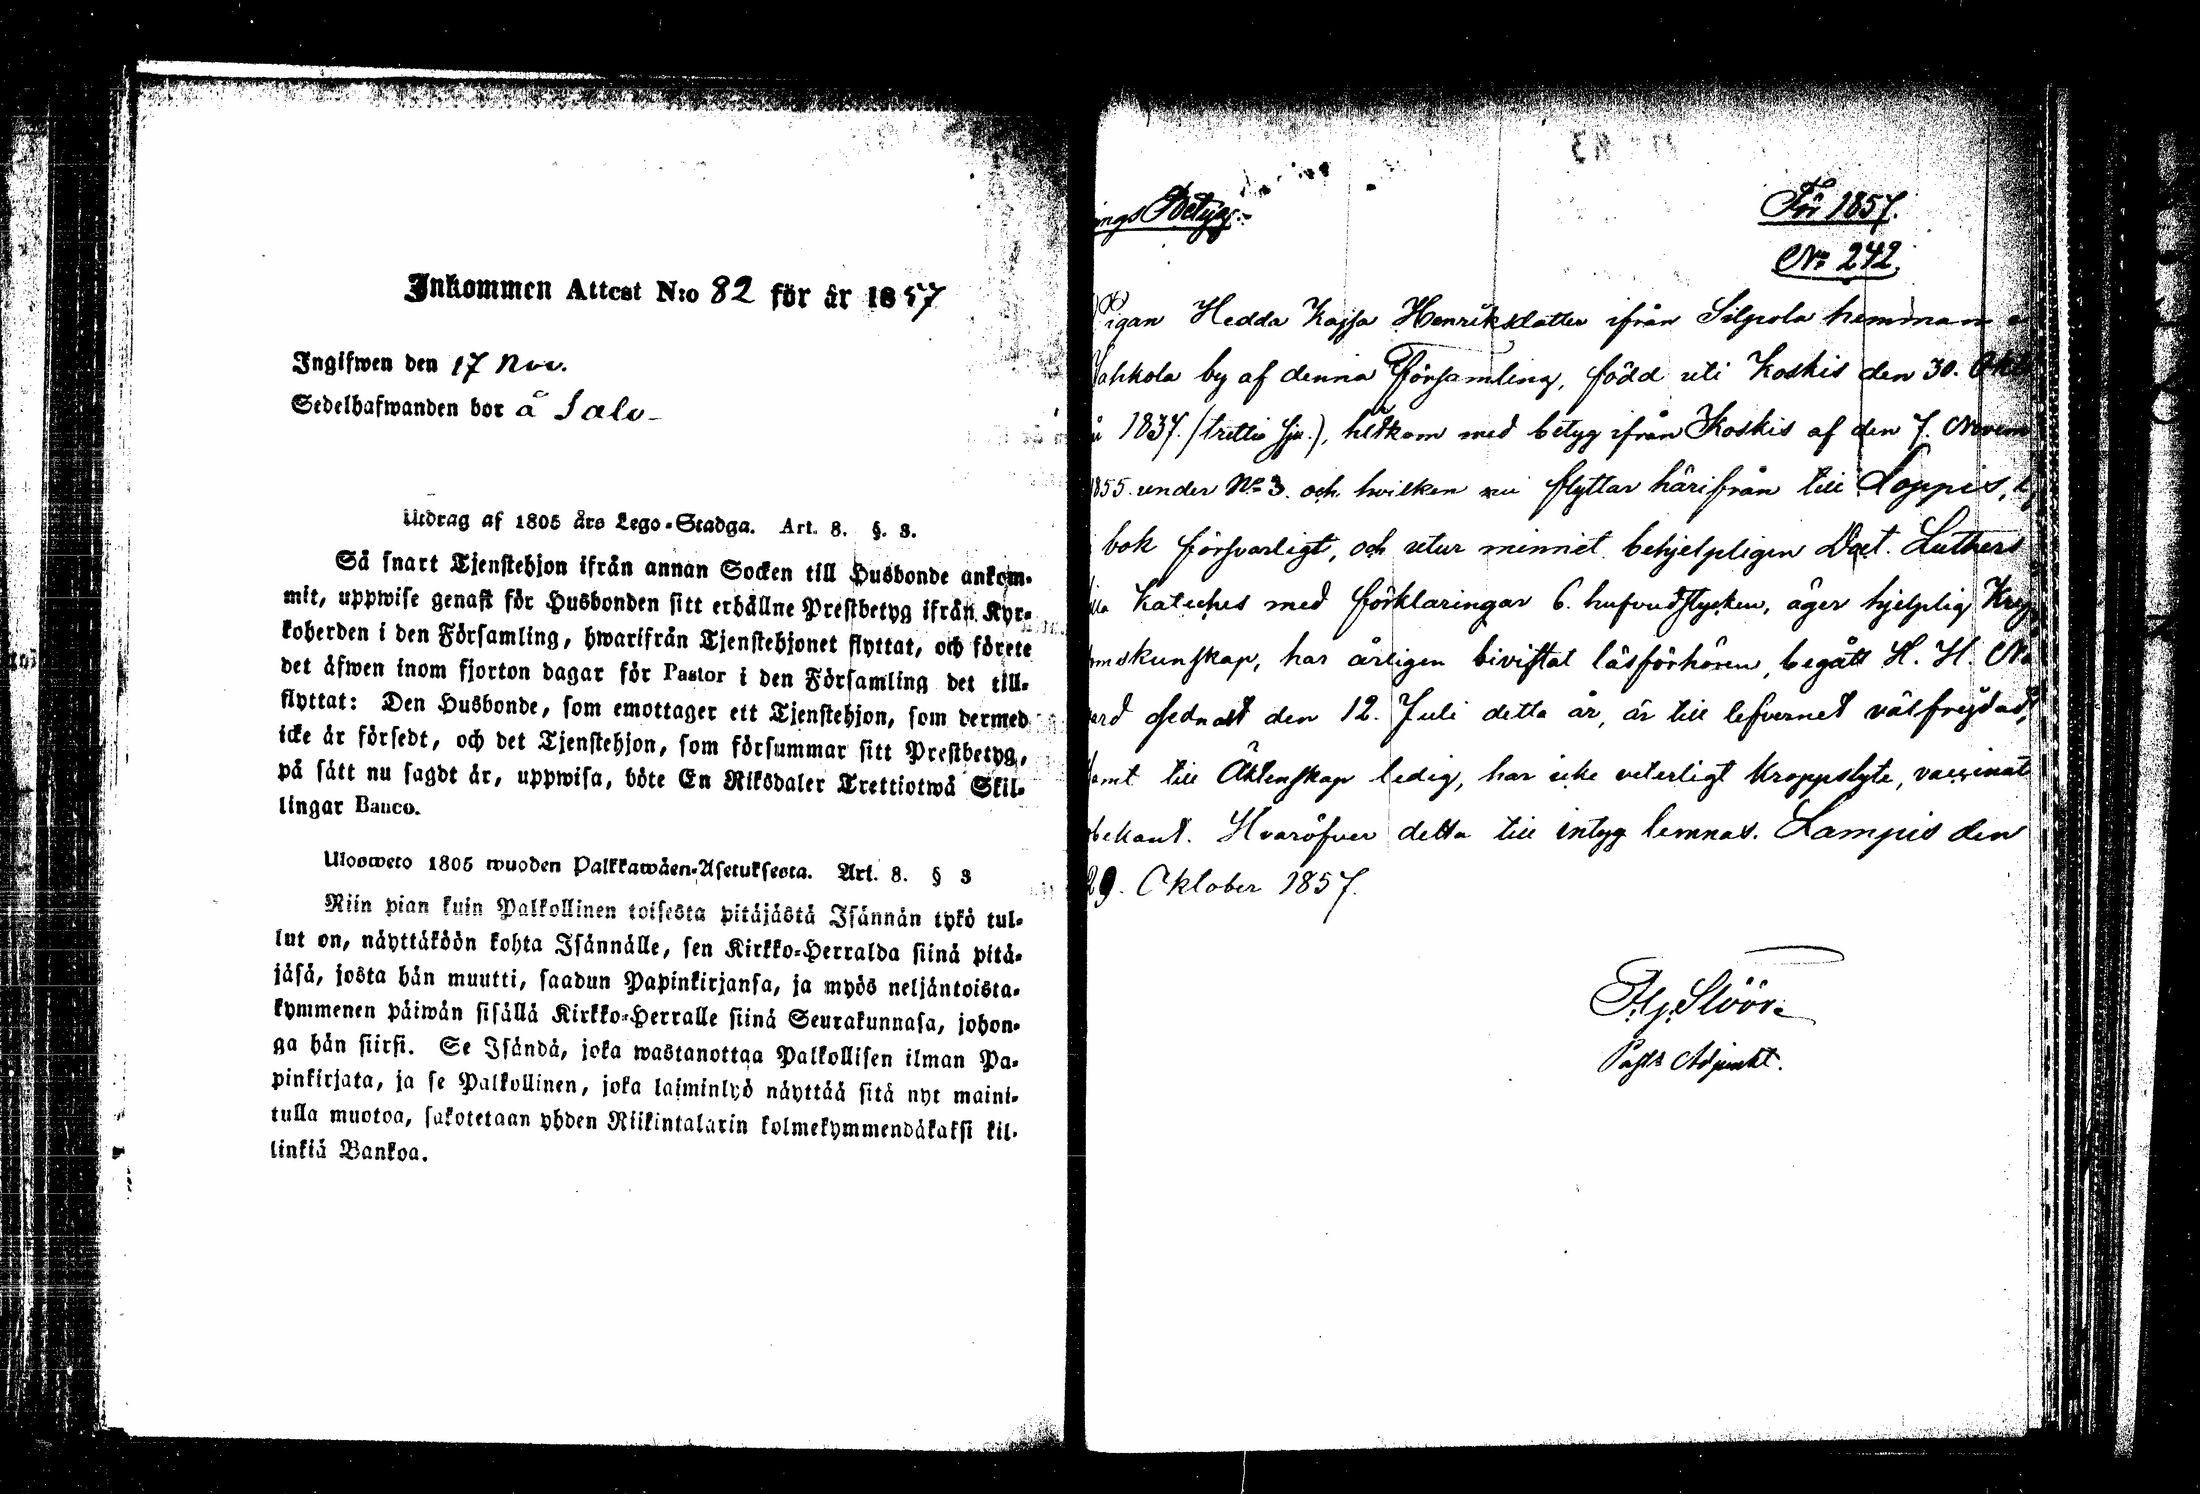 Inkommen Attest N:o 82 för år 1857
Ingifwen den 17 Nov.
Sedelhafwanden bor å Salo
Utdrag af 1805 års Lego-Stadga. Art. 8. §. 3.
Så snart Tjenstehjon ifrån annan Socken till Husbonde ankom-
mit, uppwise genast för Husbonden sitt erhållne Prestbetyg ifrån Kyr-
koherden i den Församling, hwarifrån Tjenstehjonet flyttat, och förete
det äfwen inom fjorton dagar för Pastor i den Församling det till-
flyttat: Den Husbonde, som emottager ett Tjenstehjon, som dermed
icke är försedt, och det Tjenstehjon, som försummar sitt Prestbetyg,
på sätt nu sagdt är, uppwisa, böte En Riksdaler Trettiotwå Skil-
lingar Banco.
Ulosweto 1805 wuoden Palkkawäen-Asetuksesta. Art. 8. § 3
Niin pian kuin Palkollinen toisesta pitäjästä Isännän tykö tul-
lut on, näyttäköön kohta Isännälle, sen Kirkko-Herralda siinä pitä-
jäsä, josta hän muutti, saadun Papinkirjansa, ja myös neljäntoista-
kymmenen päiwän sisällä Kirkko-Herralle siinä Seurakunnasa, johon-
ga hän siirsi. Se Isändä, joka wastanottaa Palkollisen ilman Pa-
pinkirjata, ja se Palkollinen, joka laiminlyö näyttää sitä nyt maini-
tulla muotoa, sakotetaan yhden Riikintalarin kolmekymmendäkaksi kil-
linkiä Bankoa.
ings Betyg.
För 1857.
No 242
Pigan Hedda Kajsa Henriksdotter ifrån Silpola hemman
by af denna Församling, född uti Koskis den 30. Okt
1837. (trettio sju.), hitkom med betyg ifrån Koskis af den 7. Novem
1855. under No 3. och hvilken nu flyttar härifrån till Loppis,
bok försvarligt, och utur minnet behjelpligen Doct. Luthers
lilla Kateches med förklaringar 6. hufvudstycken, äger hjelplig
omskunskap, har årligen bivistat läsförhören, begått H. H.
vard sednast den 12. Juli detta år, är till lefvernet välfrejdad,
samt till Äktenskap ledig, har icke veterligt kroppslyte, vaccinat
obekant. Hvaröfver detta till intyg lemnas. Lampis den
29. Oktober 1857.
Stöör.
Past: Adjunkt.